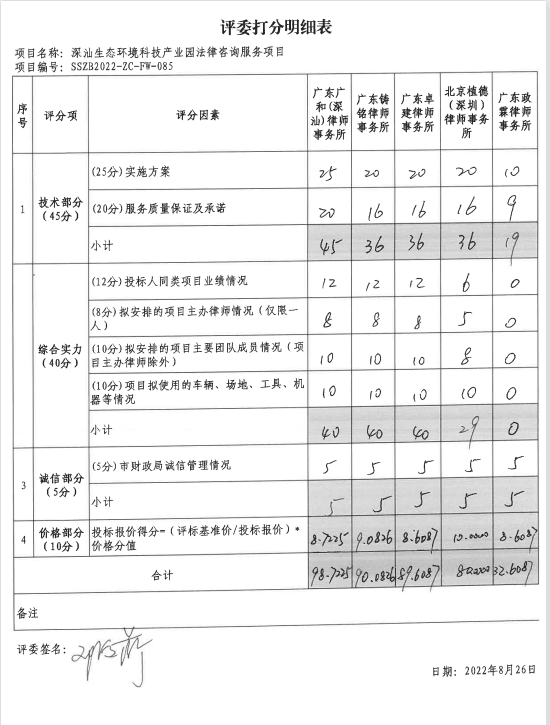 评委打分明细表
项目名称：深汕生态环境科技产业园法律咨询服务项目
项目编号：SSZB2022-ZC-FW-085
序号 评分项 评分因素 广东广和(深汕)律师事务所 广东铸铭律师事务所 广东卓建律师事务所 北京植德（深圳）律师事务所 广东政霖律师事务所
1 技术部分（45分） (25分)实施方案 25 20 20 20 10
(20分)服务质量保证及承诺 20 16 16 16 9
小计 45 36 36 36 19
综合实力（40分） (12分)投标人同类项目业绩情况 12 12 12 6 0
(8分)拟安排的项目主办律师情况（仅限一人） 8 8 8 5 0
(10分)拟安排的项目主要团队成员情况（项目主办律师除外） 10 10 10 8 0
(10分)项目拟使用的车辆、场地、工具、机器等情况 10 10 10 10 0
小计 40 40 40 29 0
3 诚信部分（5分） (5分)市财政局诚信管理情况 5 5 5 5 5
小计 5 5 5 5 5
4 价格部分（10分） 投标报价得分=（评标基准价/投标报价）*价格分值 8.7225 9.0826 8.6087 10.0000 8.6087
合计 98.7225 90.0826 89.6087 80.0000 32.6087
备注
评委签名：
日期：2022年8月26日